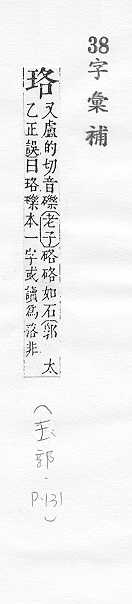 38字彙補
珞
又盧的切音礫老子珞珞如石郭太
乙正誤曰珞瓅本一字或讀爲洛非
(玉部.
P.131)